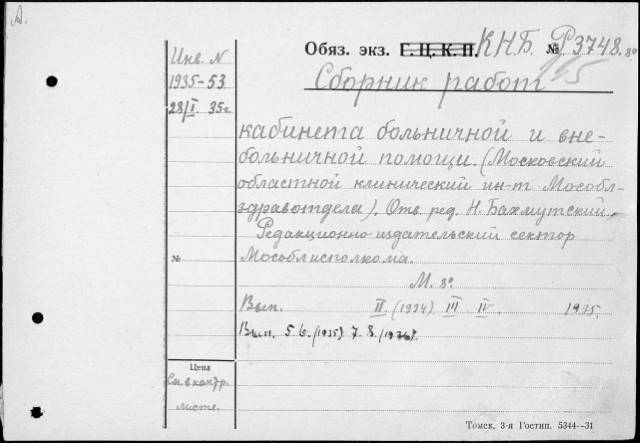 А.
Инв. N
1935-53
28/I 35г
Обяз. экз. Г. Ц. К. П. К.Н.Б. № Р3748. 8°
Сборник работ
кабинета больничной и вне-
больничной помощи. (Московский
областной клинический ин-т Мособл-
здравотдела). Отв. ред. Н. Бахмутский.
Редакционно-издательский сектор
№ Мособлисполкома.
М. 8°.
Вып. II. (1934) III IV. 1935.
Вып. 5.6. (1935) 7.8. (1936).
Цена
См в контр.
листе.
Томск, 3-я Гостип. 5344—31